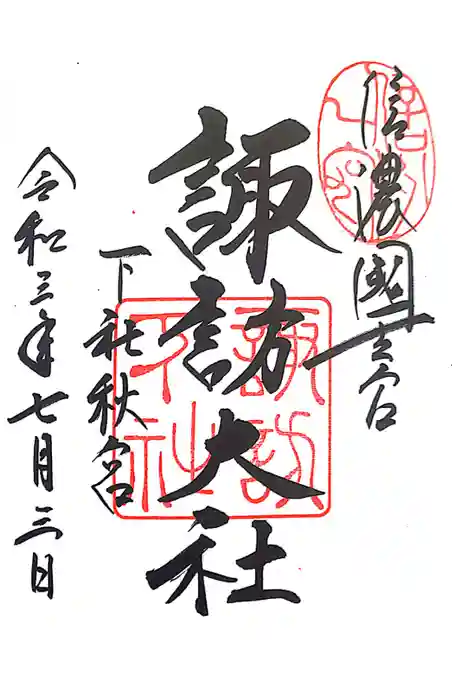 信濃國一之宮
諏訪大社
下社秋宮
令和三年七月三日
諏訪
下社